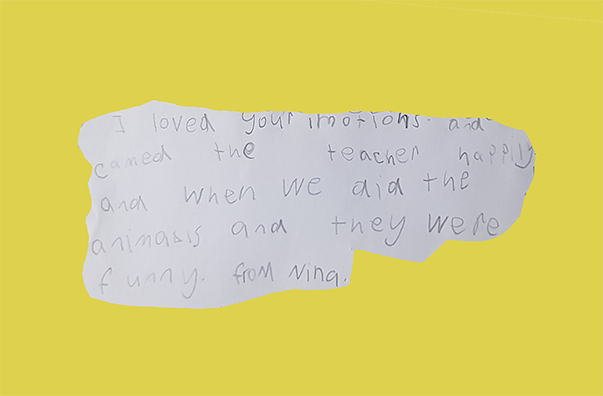 I loved your imotions. and
camed the teacher happily
and when we did the
animasis and they were
funny. from Nina.